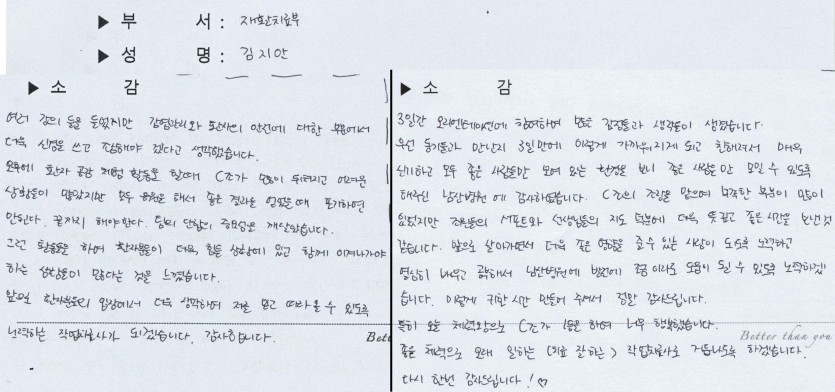 ▶ 부 서 : 재활치료부
▶ 성 명 : 김지안
▶ 소 감
여러 강의 들을 들었지만 감염관리와 환자의 안전에 대한 부분에서
더욱 신경을 쓰고 조심해야 겠다고 생각했습니다.
오후에 환자 공감 체험 활동을 할때 C조가 많이 뒤쳐지고 어려운
상황들이 많았지만 모두 응원을 해서 좋은 결과를 얻었을때 포기하면
안된다. 끝까지 해야한다. 팀의 단합의 중요성을 깨달았습니다.
그런 활동을 하며 환자분들이 더욱 힘든 상황에 있고 함께 이겨나가야
하는 상황들이 많다는 것을 느꼈습니다.
앞으로 환자분들의 입장에서 더욱 생각하여 저를 믿고 따라올 수 있도록
노력하는 작업치료사가 되겠습니다. 감사합니다.
Bett
▶ 소 감
3일간 오리엔테이션에 참여하여 많은 감정들과 생각들이 생겼습니다.
우선 동기들과 만난지 3일만에 이렇게 가까워지게 되고 친해져서 매우
신기하고 모두 좋은 사람들만 모여 있는 현장을 보니 좋은 사람들만 모일 수 있도록
해주신 남산병원에 감사하였습니다. C조의 조장을 맡으며 부족한 부분이 많이
있었지만 조원들의 서포트와 선생님들의 지도 덕분에 더욱 뜻깊고 좋은 시간을 보낸것
같습니다. 앞으로 살아가면서 더욱 좋은 영향을 줄 수 있는 사람이 되도록 노력하고
열심히 배우고 공부해서 남산병원에 발전에 조금이라도 도움이 될 수 있도록 노력하겠
습니다. 이렇게 귀한 시간 만들어 주셔서 정말 감사드립니다.
특히 오늘 체력왕으로 C조가 1등을 하여 너무 행복했습니다.
좋은 체력으로 오래 일하는 (치료 잘하는) 작업치료사로 거듭나도록 하겠습니다.
다시 한번 감사드립니다! ♡
Better than you